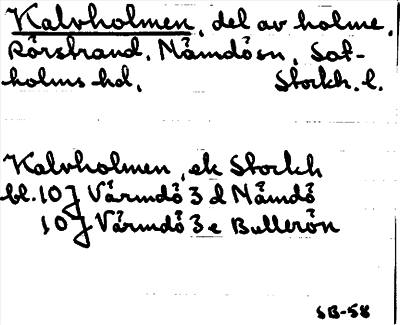 Kalvholmen, del av holme,
Rörstrand, Nämdösn, Sot-
holms hd, Stockh. l.
Kalvholmen, ek Stockh
bl. 10 J Värmdö 3 d Nämdö
10 J Värmdö 3 e Bullerön
SB-58